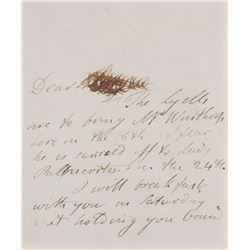 Dear
The Lyells
are to bring Mr Winthrop
here on the 8th I fear
he is carried off to Lady
on the 24th.
I will breakfast
with you on Saturday
and holding you bound